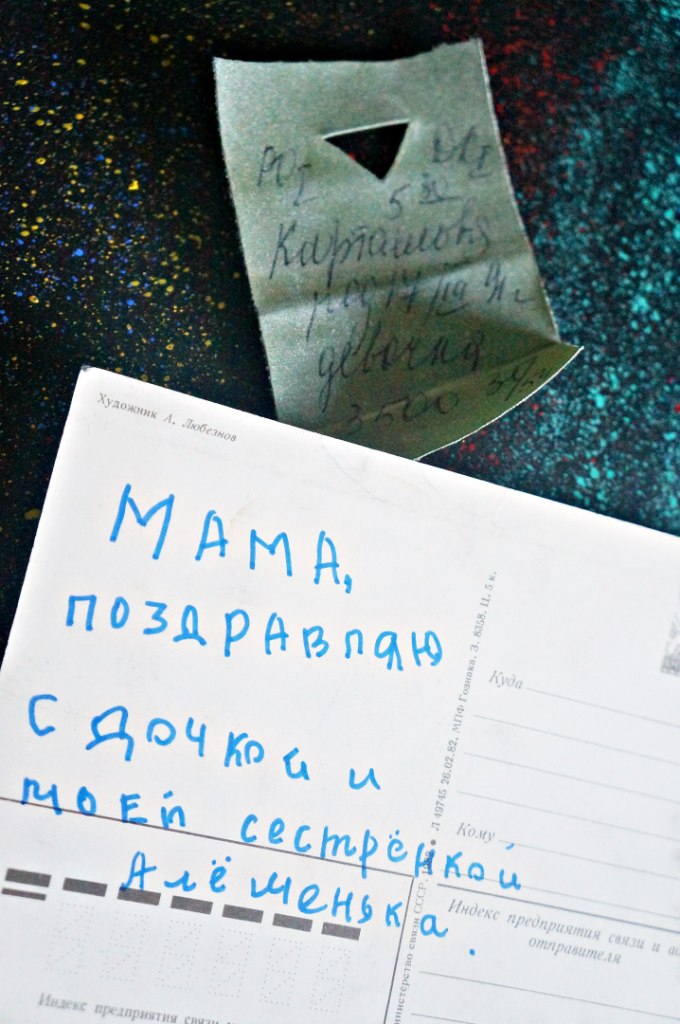 5
Карташова
род 17/III 91 г
девочка
3500 54
Художник А. Любезнов
МАМА,
ПОЗДРАВЛЯЮ
С ДОЧКОЙ И
МОЕЙ СЕСТРЁНКОЙ
АЛЁШЕНЬКА.
Министерство связи СССР. Л 49745 26.02.82. МПФ Гознака. З. 8358. Ц. 5 к.
Куда
Кому
Индекс предприятия связи и
отправителя
Индекс предприятия связи